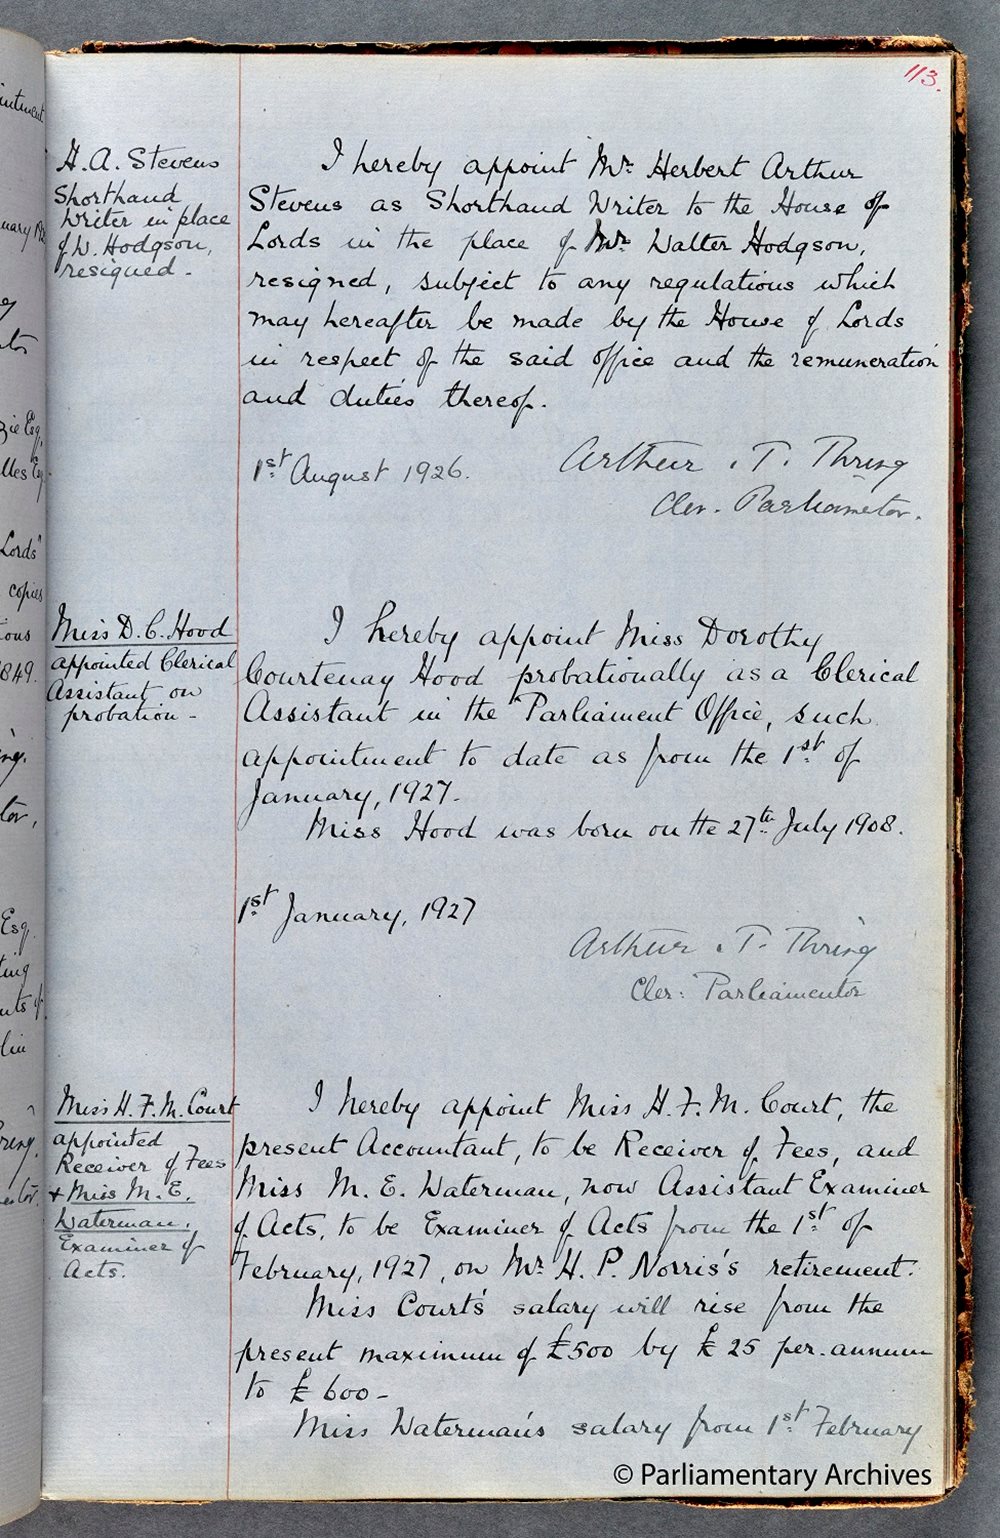 113.
H. A. Stevens
Shorthand
Writer in place
of W. Hodgson,
resigned -
I hereby appoint Mr. Herbert Arthur
Stevens as Shorthand Writer to the House of
Lords in the place of Mr. Walter Hodgson,
resigned, subject to any regulations which
may hereafter be made by the House of Lords
in respect of the said office and the remuneration
and duties thereof.
1st August 1926.
Arthur . T. Thring
Cler. Parliamentor.
Miss D. C. Hood
appointed Clerical
Assistant on
probation -
I hereby appoint Miss Dorothy
Courtenay Hood probationally as a Clerical
Assistant in the Parliament Office, such
appointment to date as from the 1st of
January, 1927.
Miss Hood was born on the 27th July 1908.
1st January, 1927
Arthur . T. Thring
Cler: Parliamentor
Miss H. F. M. Court
appointed
Receiver of Fees
+ Miss M. E.
Waterman.
Examiner of
Acts.
I hereby appoint Miss H. F. M. Court, the
present Accountant, to be Receiver of Fees, and
Miss M. E. Waterman, now Assistant Examiner
of Acts, to be Examiner of Acts from the 1st of
February, 1927, on Mr. H. P. Norris's retirement.
Miss Court's salary will rise from the
present maximum of £500 by £25 per. annum
to £600 -
Miss Waterman's salary from 1st February
© Parliamentary Archives